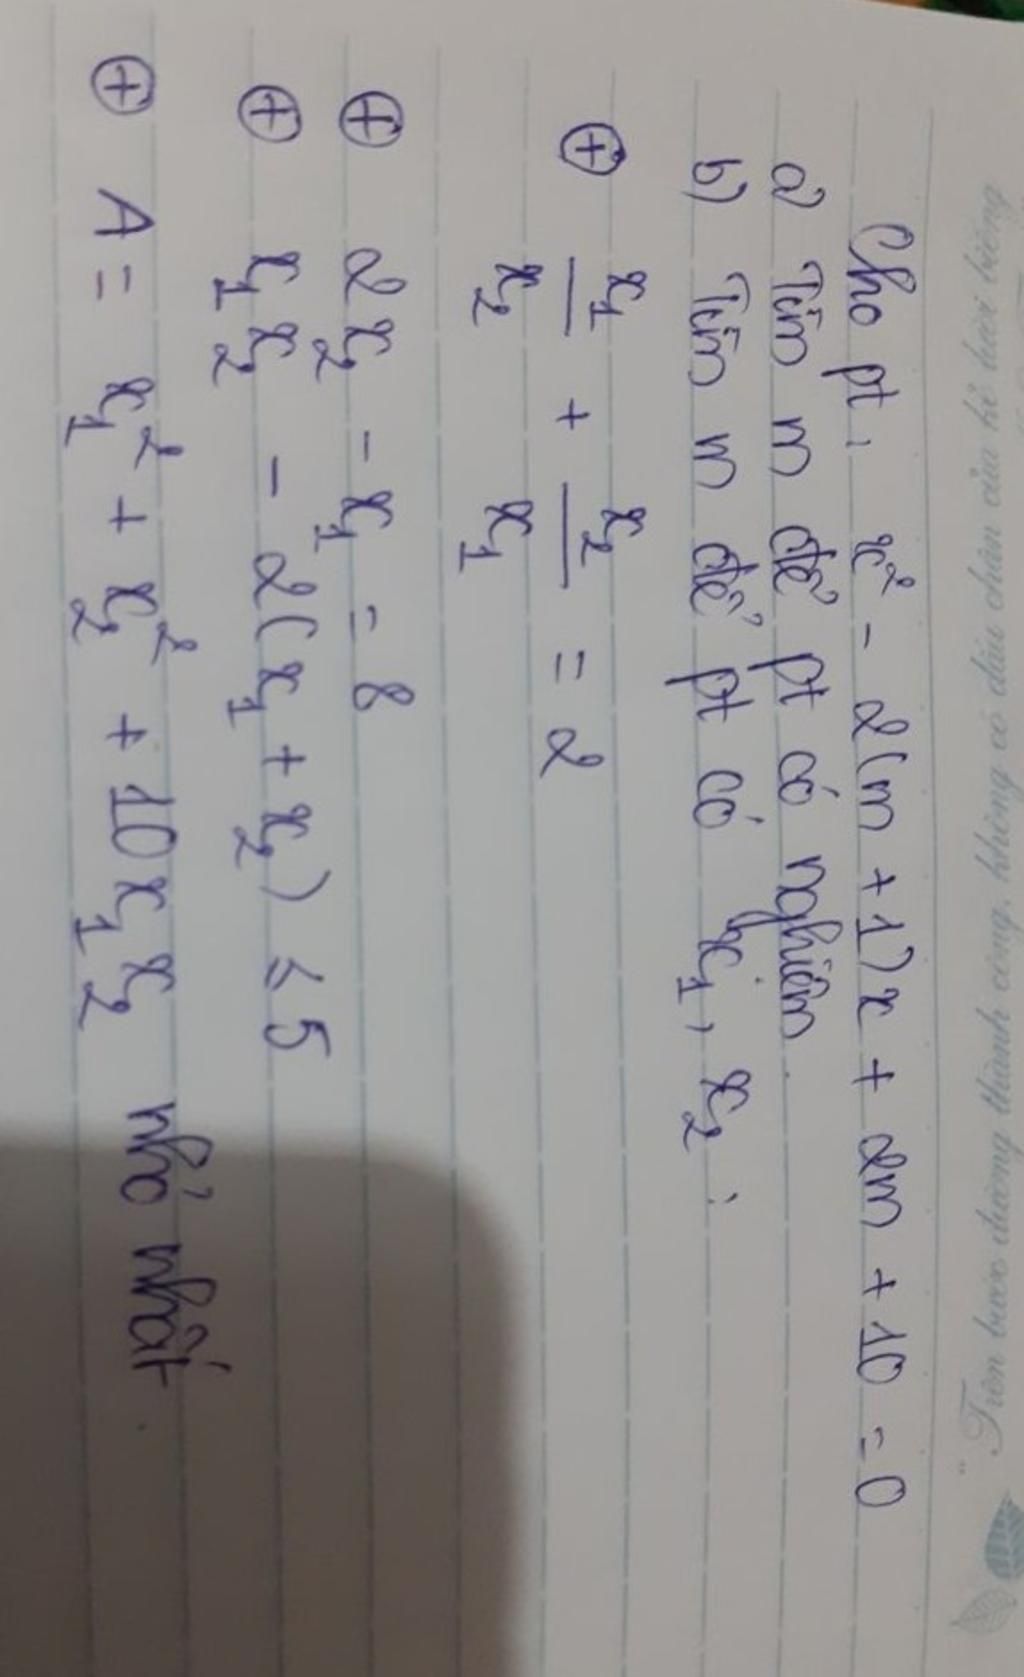 "Trên bước đường thành công, không có dấu chân của kẻ lười biếng
Cho pt: x² - 2(m + 1)x + 2m + 10 = 0
a) Tìm m để pt có nghiệm.
b) Tìm m để pt có x₁, x₂ :
⊕ x₁/x₂ + x₂/x₁ = 2
⊕ 2x₂ - x₁ = 8
⊕ x₁x₂ - 2(x₁ + x₂) ≤ 5
⊕ A = x₁² + x₂² + 10x₁x₂ nhỏ nhất.